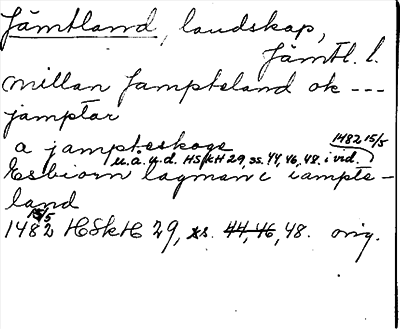 Jämtland, landskap,
Jämtl. l.
millan Jampteland ok ---
jamptar
a jampteskoge
1482 15/5
u.å.g.d. HSkH 29, ss. 44, 46, 48. i vid.
Esbiorn lagman i iampte-
land
15/5
1482 HSkH 29, s. 44, 46, 48. orig.